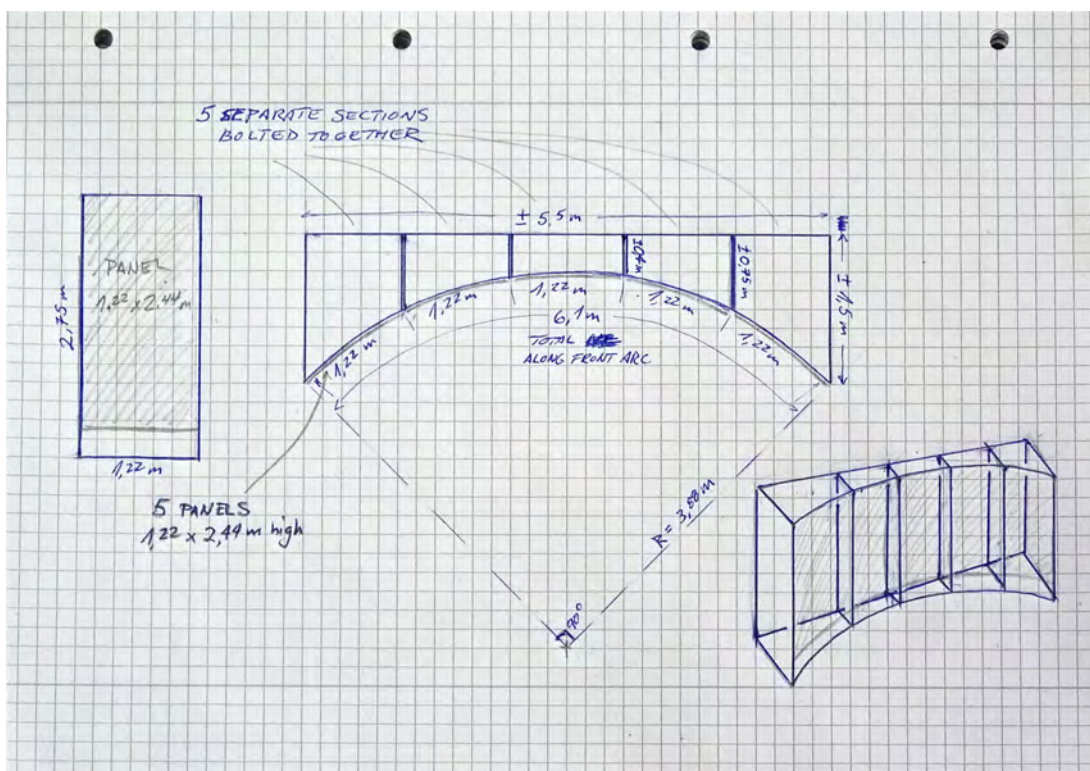 5 SEPARATE SECTIONS
BOLTED TOGETHER
± 5,5 m
PANEL
1,22 x 2,44 m
2,75 m
1,22 m
±0,4m
±0,75m
± 1,5 m
1,22 m
1,22 m
1,22 m
1,22 m
1,22 m
6,1m
TOTAL
ALONG FRONT ARC
5 PANELS
1,22 x 2,44 m high
R = 3,88 m
90°